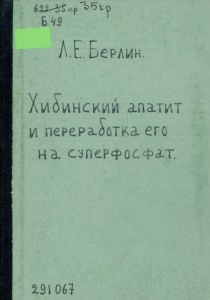 35кр
Б 49
Л.Е. Берлин.
Хибинский апатит
и переработка его
на суперфосфат.
291067